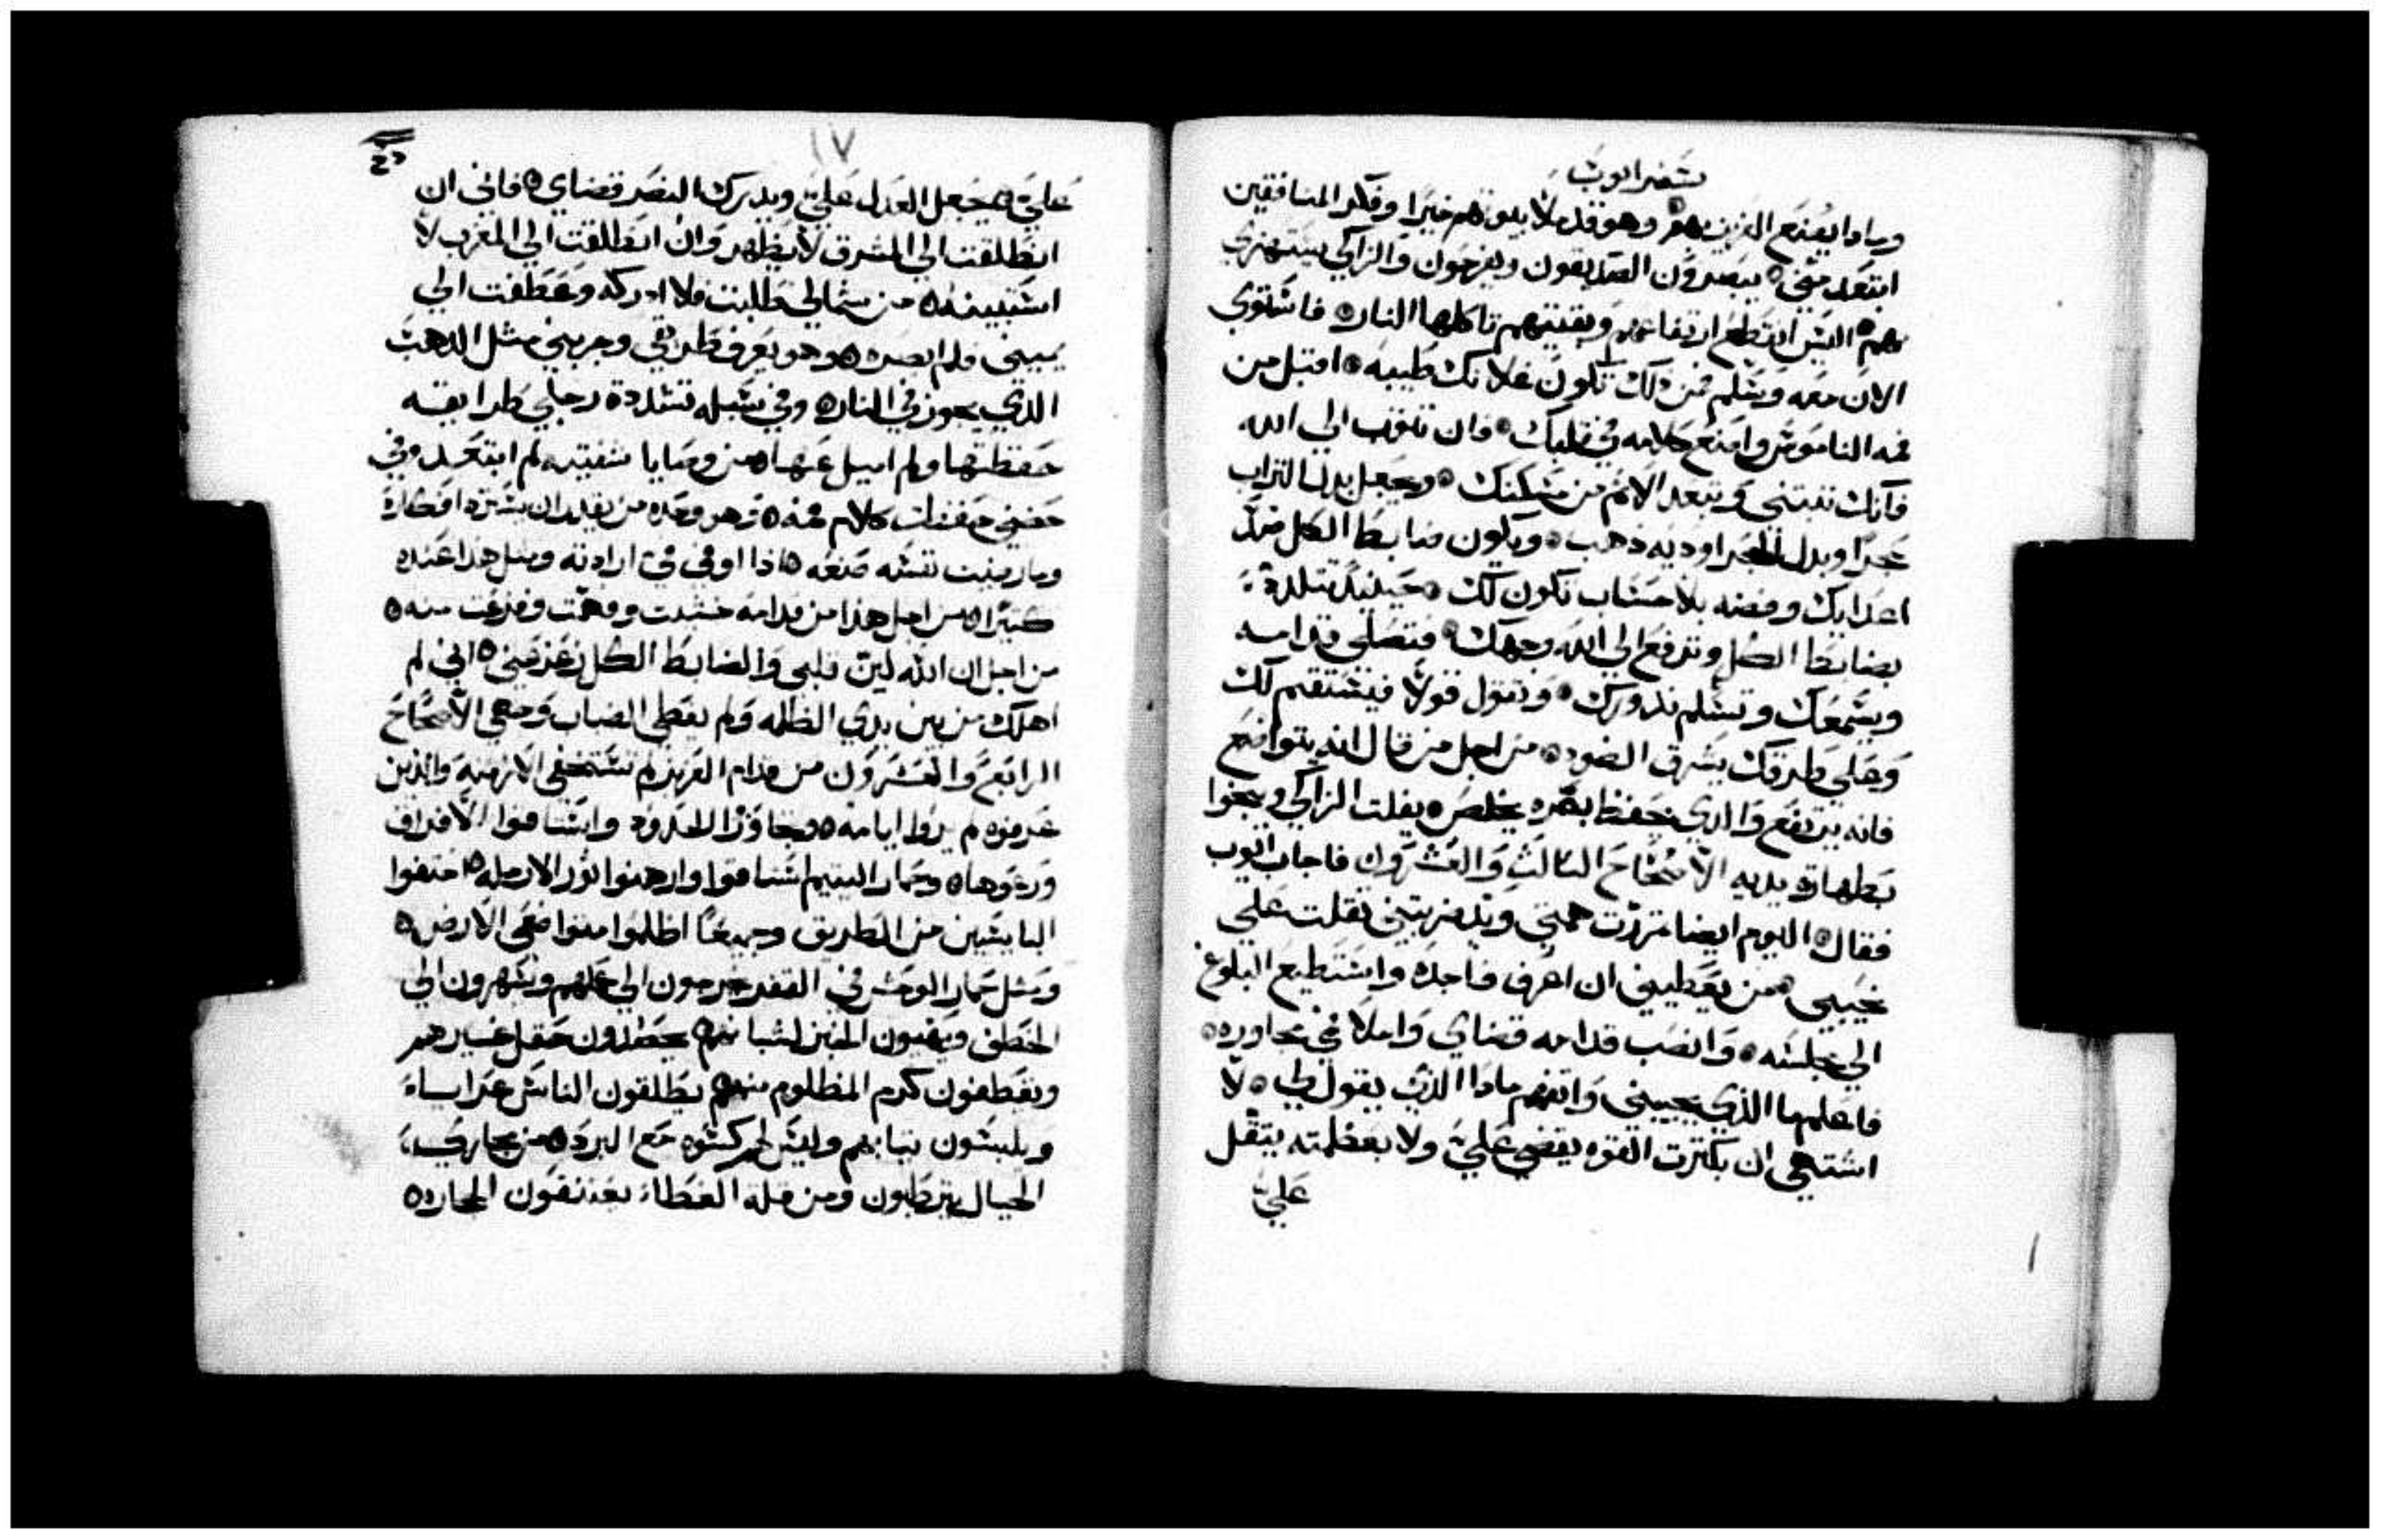 سفر ايوب
وماذا يصنع العزيز بهم وهو قد ملأ بيوتهم خيرا وفكر المنافقين
ابتعد مني يبصرون الصديقون ويفرحون والزاكي يستهزي
بهم اليس انقطع ارتفاعهم وبقيتهم تاكلها النار فاستوي
الان معه وسلم فمن ذلك تكون غلاتك طيبه اقبل من
فمه الناموس وامنع كلامه في قلبك فان تقرب الي الله
فانك تنبتني وتبعد الاثم من مسكنك ويجعل بدل التراب
حجرا وبدل الحجر اوديه ذهب ويكون ضابط الكل ضد
اعدايك وفضه بلا حساب تكون لك حينيذ تتلذذ
بضابط الكل وترفع الي الله وجهك فتصلي قدامه
ويسمعك وتسلم نذورك وتقول قولا فيستقيم لك
وعلي طرقك يشرق الضود من اجل من قال انه يتواضع
فانه يرتفع والذي يحفظ بصره يخلص يفلت الزاكي وينجوا
بطهارة يديه الاصحاح الثالث والعشرون فاجاب ايوب
فقال اليوم ايضا تمررت همتي ويد ضربتني ثقلت علي
نحيبي من يعطيني ان اعرف فاجده واستطيع البلوغ
الي مجلسه وانصب قدامه قضاي واملا فمي محاوره
فاعلم ما الذي يجيبني واتفهم ماذا الذي يقول لي لا
اشتهي ان بكثرت القوه يقضي علي ولا بعظمته يثقل
علي
١٧
علي يجعل العدل علي ويدرك النصر قضاي فاني ان
انطلقت الي المشرق لا يظهر وان انطلقت الي المغرب لا
استبينه من شمالي طلبت فلا ادركه وعطفت الي
يميني فلم ابصره وهو يعرف طريقي وجربني مثل الذهب
الذي يجوز في النار وفي سبله تشددة رجلي طرايقه
حفظتها ولم اميل عنها من وصايا شفتيه لم ابتعد وفي
حضني حفظت كلام فمه هو وحده من يقدر ان يسترد افكاره
وما رضيت نفسه صنعه اذا اوفي في ارادته ومثل هذا عنده
كثيرا من اجل هذا من قدامه خشيت وفهمت وفزعت منه
من اجل ان الله لين قلبي والضابط الكل زعزعني اني لم
اهلك من بين يدي الظلمه ولم يغطي الضباب وجهي الاصحاح
الرابع والعشرون من قدام العزيز لم تستخفي الازمنه والذين
عرفوه لم يروا ايامه وتجاوزا الحدود واستاقوا الافراق
ورعوها وحمار اليتيم استاقوا وارهنوا ثور الارمله حتفوا
البايسين من الطريق وجميعا اظلموا متواضعي الارض
ومثل حمار الوحش في القفر يخرجون الي عملهم ويسهرون الي
الخطف ويهيون الخبز لشبانهم يحصدون حقل غيرهم
ويقطفون كرم المظلوم منهم يطلقون الناس عراساء
ويلبسون ثيابهم وليس لهم كسوه مع البرد من مجاري
الجبال يترطبون ومن قلة الغطاء يعتنقون الحجاره